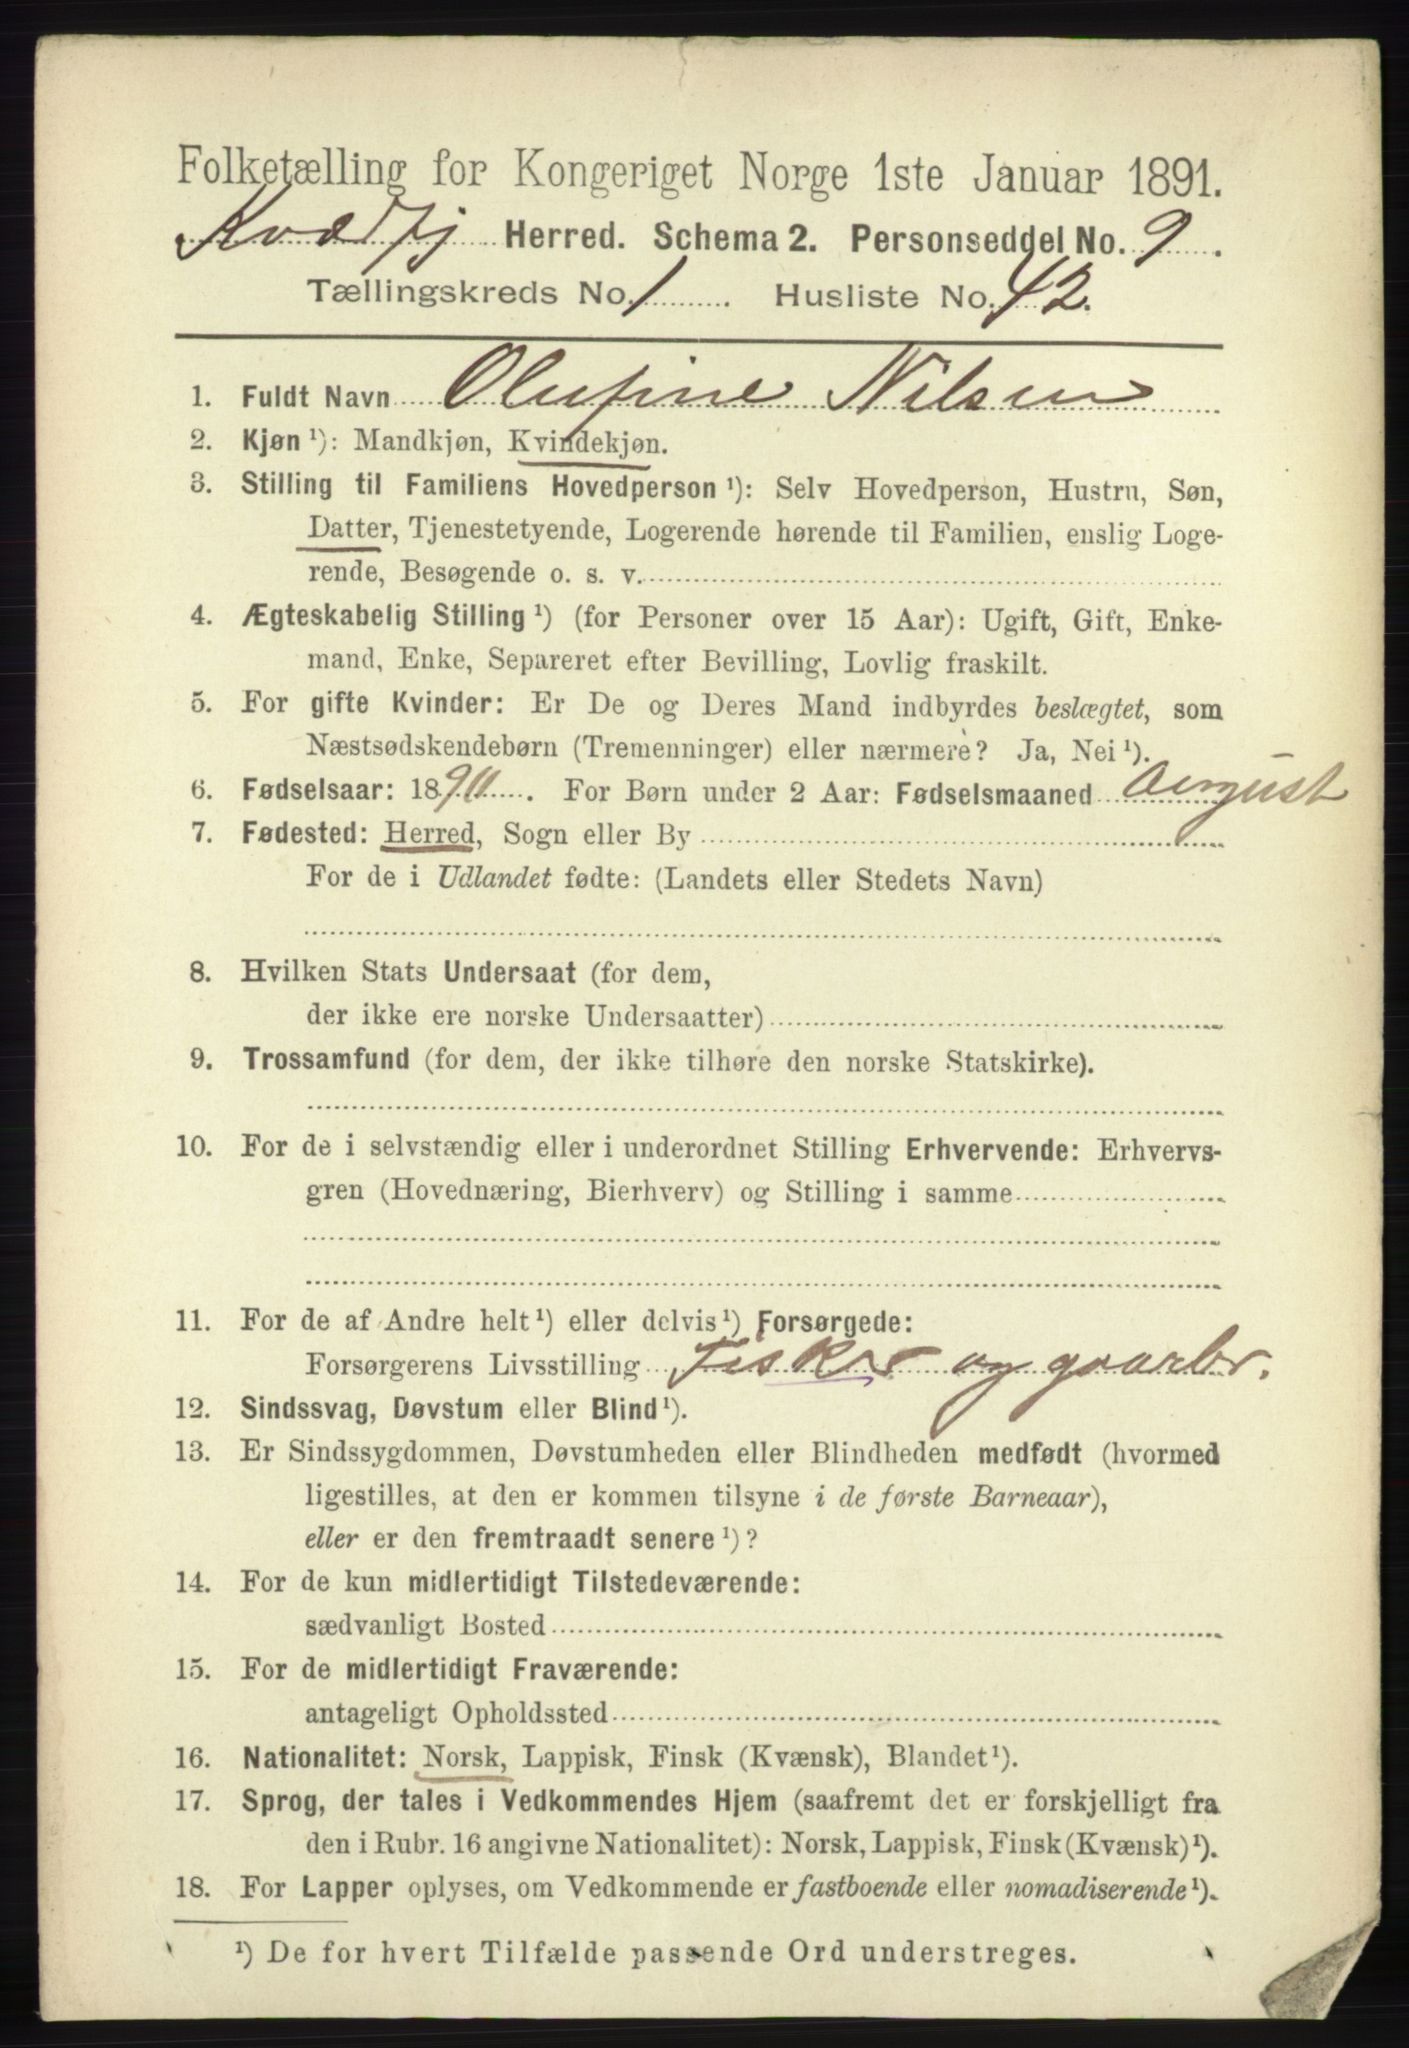 Folketælling for Kongeriget Norge 1ste Januar 1891.
Kvædfj Herred. Schema 2. Personseddel No. 9.
Tællingskreds No. 1. Husliste No. 42.
1. Fuldt Navn Olufine Nilsen
2. Kjøn ¹): Mandkjøn, Kvindekjøn.
3. Stilling til Familiens Hovedperson ¹): Selv Hovedperson, Hustru, Søn,
Datter, Tjenestetyende, Logerende hørende til Familien, enslig Loge-
rende, Besøgende o. s. v.
4. Ægteskabelig Stilling ¹) (for Personer over 15 Aar): Ugift, Gift, Enke-
mand, Enke, Separeret efter Bevilling, Lovlig fraskilt.
5. For gifte Kvinder: Er De og Deres Mand indbyrdes beslægtet, som
Næstsødskendebørn (Tremenninger) eller nærmere? Ja, Nei ¹).
6. Fødselsaar: 1890. For Børn under 2 Aar: Fødselsmaaned August
7. Fødested: Herred, Sogn eller By
For de i Udlandet fødte: (Landets eller Stedets Navn)
8. Hvilken Stats Undersaat (for dem,
der ikke ere norske Undersaatter)
9. Trossamfund (for dem, der ikke tilhøre den norske Statskirke).
10. For de i selvstændig eller i underordnet Stilling Erhvervende: Erhvervs-
gren (Hovednæring, Bierhverv) og Stilling i samme
11. For de af Andre helt ¹) eller delvis ¹) Forsørgede:
Forsørgerens Livsstilling Fisker og gaarbr.
12. Sindssvag, Døvstum eller Blind ¹).
13. Er Sindssygdommen, Døvstumheden eller Blindheden medfødt (hvormed
ligestilles, at den er kommen tilsyne i de første Barneaar),
eller er den fremtraadt senere ¹)?
14. For de kun midlertidigt Tilstedeværende:
sædvanligt Bosted
15. For de midlertidigt Fraværende:
antageligt Opholdssted
16. Nationalitet: Norsk, Lappisk, Finsk (Kvænsk), Blandet ¹).
17. Sprog, der tales i Vedkommendes Hjem (saafremt det er forskjelligt fra
den i Rubr. 16 angivne Nationalitet): Norsk, Lappisk, Finsk (Kvænsk) ¹).
18. For Lapper oplyses, om Vedkommende er fastboende eller nomadiserende ¹).
¹) De for hvert Tilfælde passende Ord understreges.